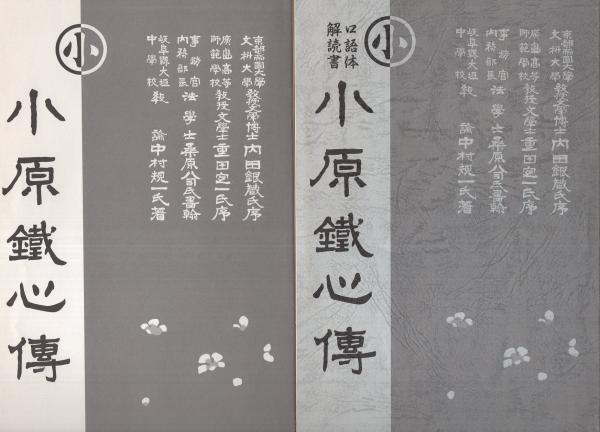 京都帝國大學
文科大學
教授文學博士内田銀藏氏序
廣島高等
師範學校
教授文學士重田定一氏序
内務部長
法學士桑原公司氏書翰
岐阜縣大垣
中學校
教諭中村規一氏著
小
小原鐵心傳
京都帝國大學
文科大學
教授文學博士内田銀藏氏序
廣島高等
師範學校
教授文學士重田定一氏序
内務部長
法學士桑原公司氏書翰
岐阜縣大垣
中學校
教諭中村規一氏著
小
口語体
解読書
小原鐵心傳